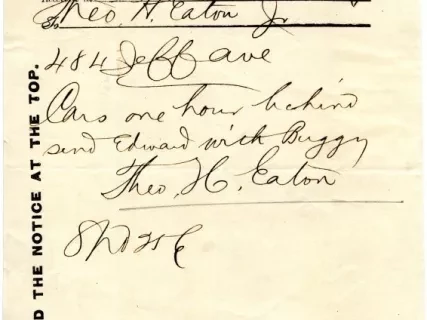 To Theo. H. Eaton Jr
484 Jeff ave
Cars one hour behind
send Edward with Buggy
Theo. H. Eaton
D THE NOTICE AT THE TOP.